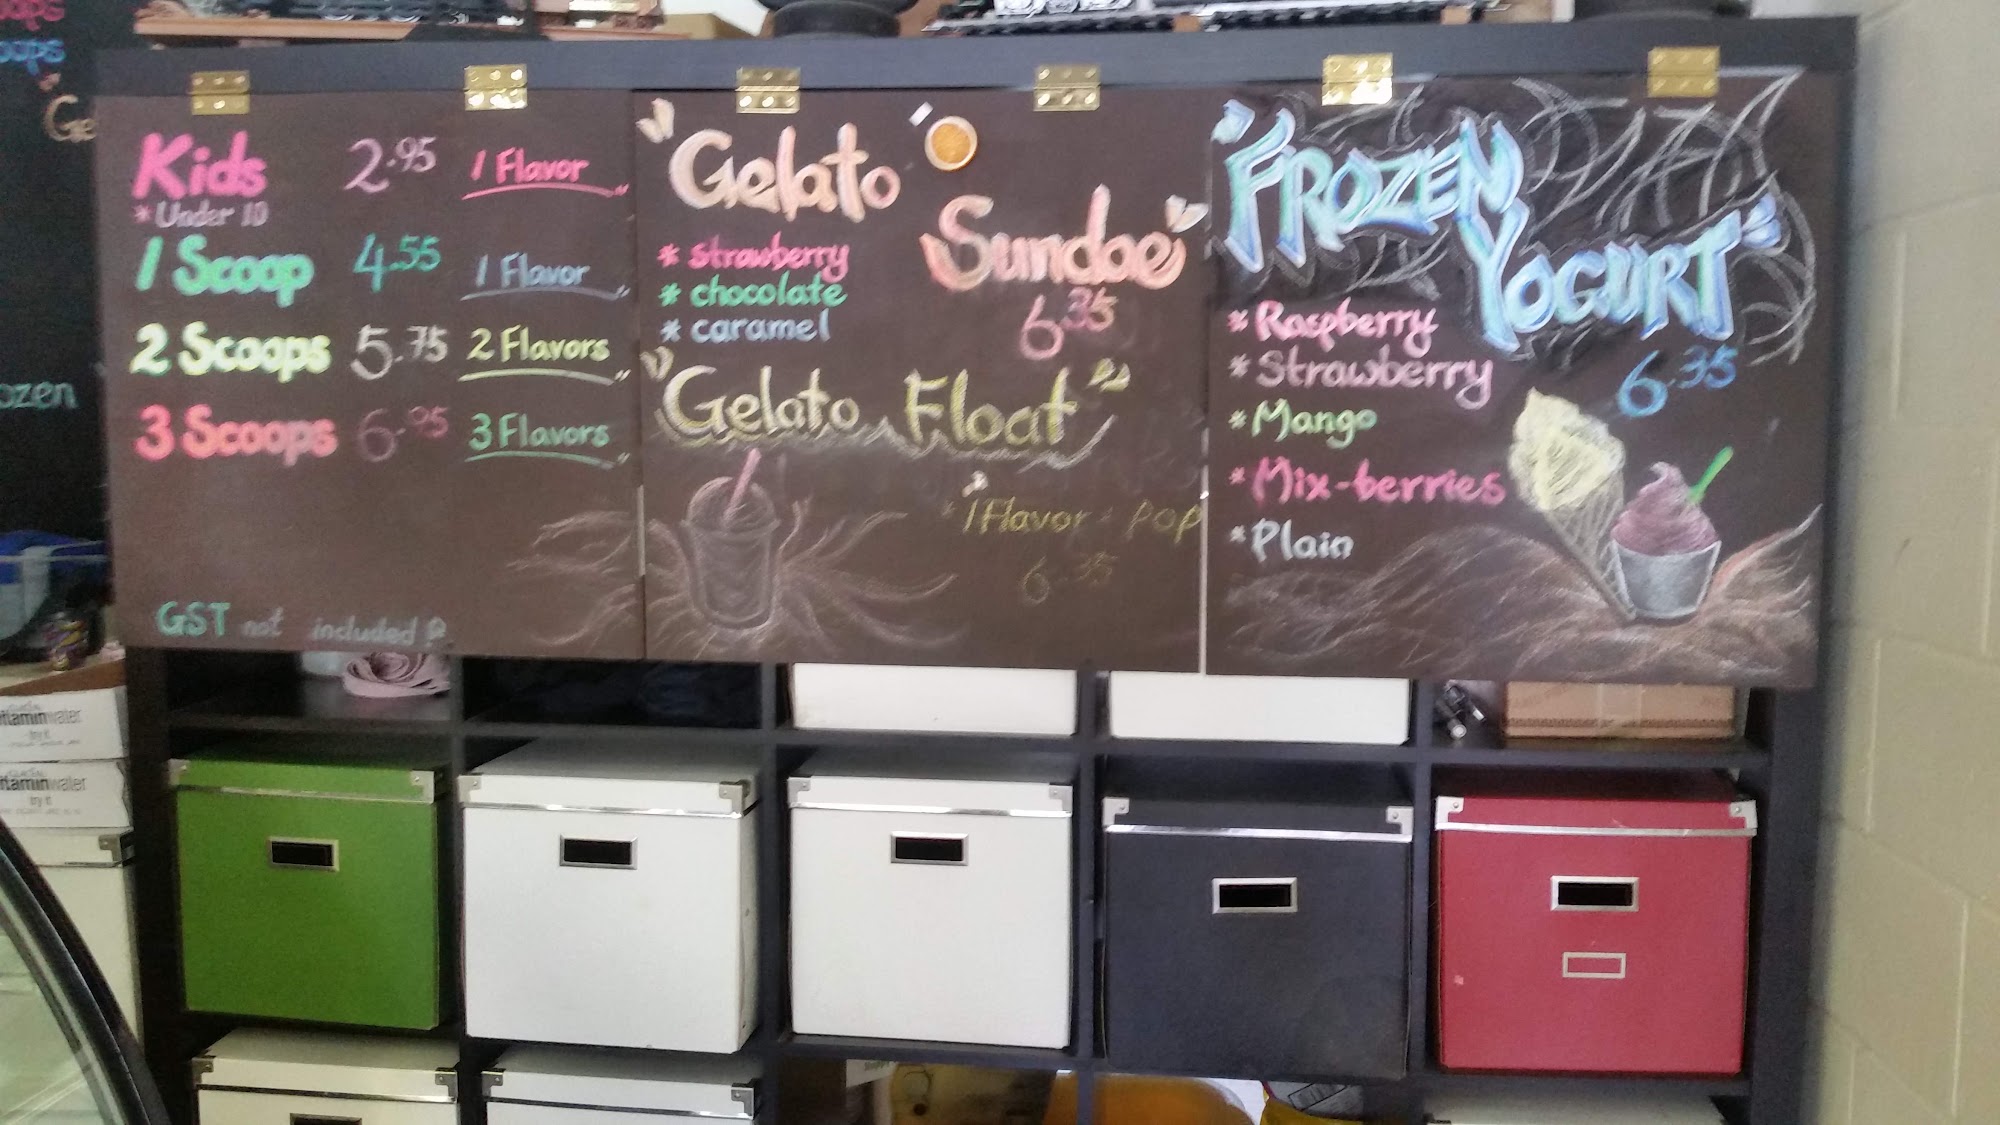 Kids 2.95 1 Flavor
*Under 10
1 Scoop 4.55 1 Flavor
2 Scoops 5.75 2 Flavors
3 Scoops 6.95 3 Flavors
GST not included
"Gelato
Sundae"
6.35
* strawberry
* chocolate
* caramel
"Gelato Float"
*1 Flavor + Pop
6.35
"FROZEN
YOGURT"
6.35
* Raspberry
* Strawberry
* Mango
* Mix-berries
* Plain
oops
oops
Ge
ozen
water
try it
taminwater
try it